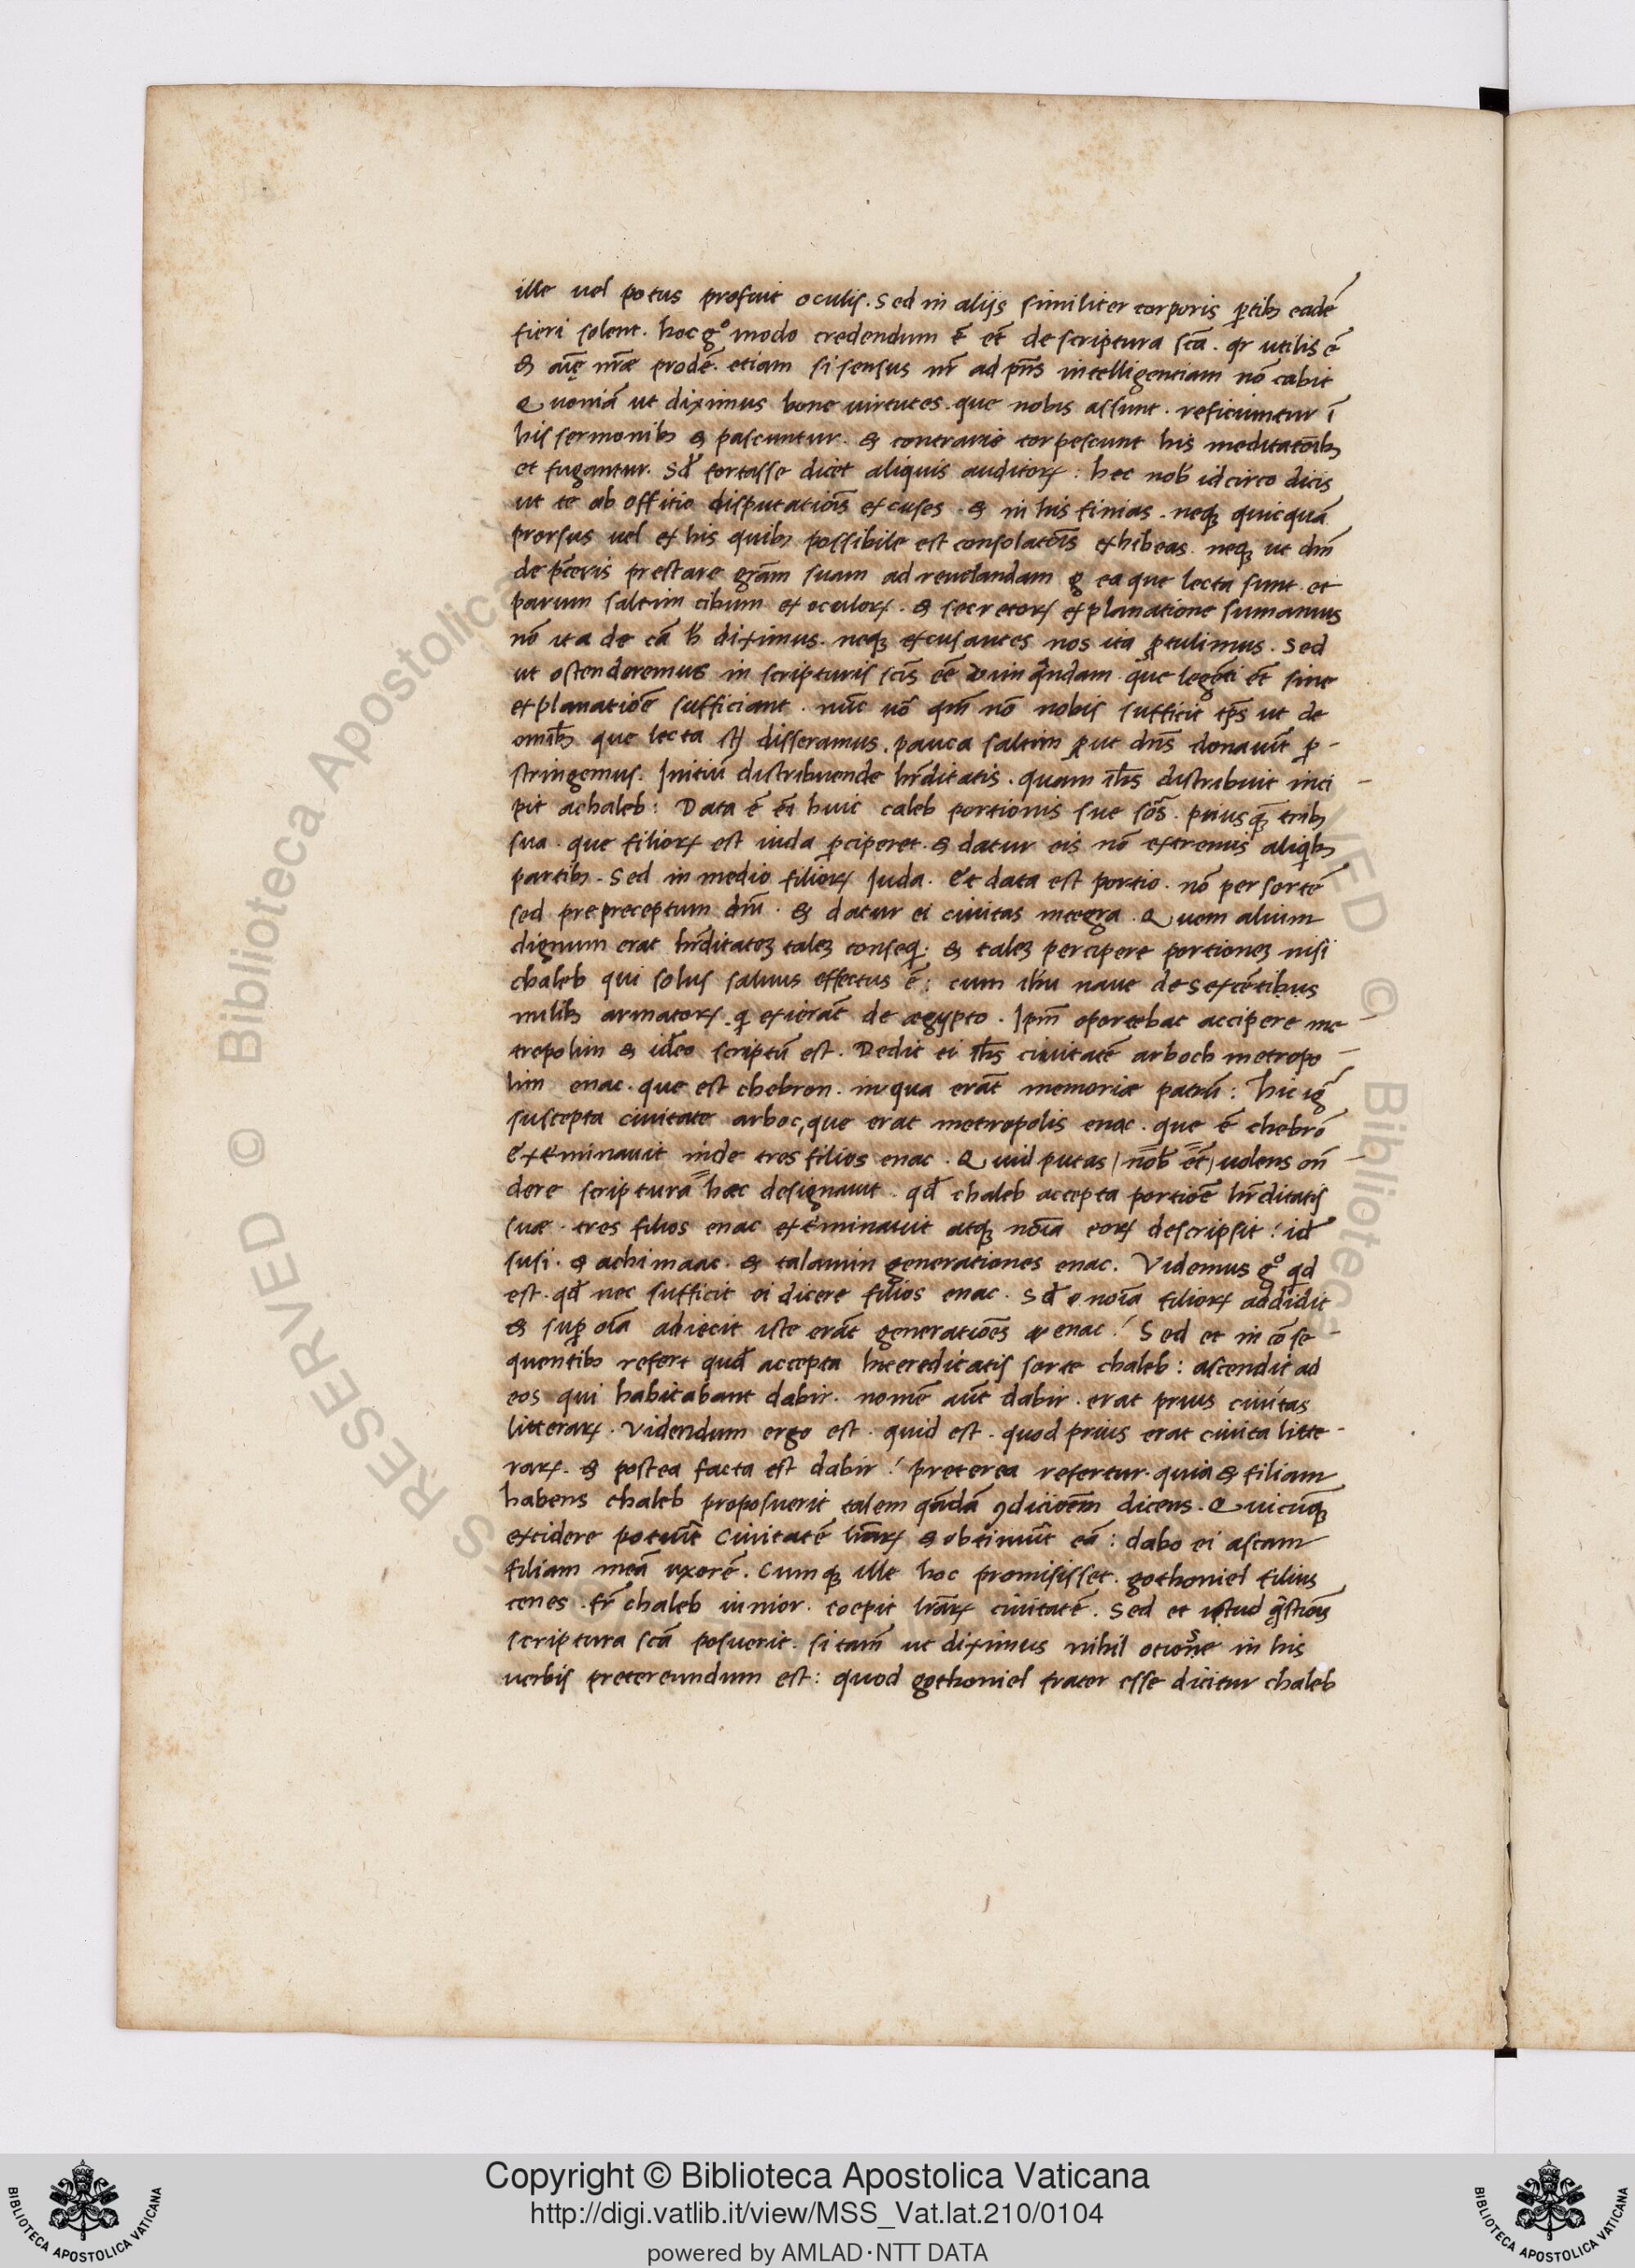 ille uel potus profuit oculis. Sed in alijs similiter corporis ꝑtibꝫ eadē
fieri solent. hoc gͦ modo credendum ē et̄ de scriptura scā. qr utilis ē
& aīę nr̄æ prodē. etiam si sensus nr̄ ad pn̄s intelligentiam nō cabit
Quoniā ut diximus bone uirtutes. que nobis assunt. reficiuntur ī
his sermonibꝫ & pascuntur. & contrarie torpescunt his meditatōibꝫ
et fugantur. Sꝫ fortasse dicet aliquis auditoꝝ: hec nob̄ idcirco dicis
ut te ab offitio disputatiōis excuses. & in his finias. neqꝫ quicquā
prorsus uel ex his quibꝫ possibile est consolatōis exhibeas. neqꝫ ut dn̄i
de pc̄eris prestare grām suam ad reuelandam g ea que lecta sunt. et
parum saltim cibum ex oculoꝝ. & secretoꝝ explanatione sumamus
nō ita de cā h̄ diximus. neqꝫ excusantes nos ita ꝓtulimus. Sed
ut ostenderemus in scripturis scīs eē uim q̄ndam. que legēti et̄ sine
explanatiōe sufficiant. nūc uō qm̄ nō nobis sufficit tp̄s ut de
omībꝫ que lecta st̄ disseramus. pauca saltim ꝓut dn̄s donauit p̄-
stringemus. Initiū distribuende hr̄ditatis. quam ih̄s distribuit inci-
pit achaleb: Data ē ei huic caleb portionis sue sōs. priusqꝫ tribꝫ
sua. que filioꝝ est iuda ꝑciperet. & datur eis nō extremis aliqibꝫ
partibꝫ. Sed in medio filioꝝ Juda. Et data est portio. nō per sortē
sed pre preceptum dn̄i. & datur ei ciuitas integra. Quem alium
dignum erat hr̄ditateꝫ taleꝫ conseq̄: & taleꝫ percipere portioneꝫ nisi
chaleb qui solus saluus effectus ē: cum ih̄u naue de sexcētibus
milibꝫ armatoꝝ. q̄ exierāt de ægypto. Ipm̄ oportebat accipere me
tropolim & ideo scriptū est. Dedit ei ih̄s ciuitatē arboch metropo-
lim enac. que est chebron. in qua erāt memoriæ patrū: hic ig̅
suscepta ciuitate arboc, que erat metropolis enac. que ē chebrō
exterminauit inde tres filios enac. Quid putas (nob̄ et̄) uolens on̄-
dere scriptura hæc designauit. qd̄ chaleb accepta portiōe hr̄ditatis
suæ. tres filios enac exterminauit atqꝫ noīa eoꝝ descripsit: id
susi. & achimaac. & talamin generationes enac. Videmus gͦ qid
est. qd̄ nec sufficit ei dicere filios enac. Sꝫ & noīa filioꝝ addidit
& suꝑ oīa adiecit iste erāt generatiōes enac! Sed et in cōse-
quentibꝫ refert qud̄ accepta hæreditatis sorte chaleb: ascendit ad
eos qui habitabant dabir. nomē aūt dabir. erat prius ciuitas
litteraꝝ. Videndum ergo est. quid est. quod prius erat ciuita litte-
raꝝ. & postea facta est dabir! preterea refertur. quia & filiam
habens chaleb proposuerit talem qādā ꝯdiciōem dicens. Quicūqꝫ
excidere potuīt ciuitatē lr̄aꝝ & obtinuīt eā: dabo ei ascam
filiam meā uxorē. Cumqꝫ ille hoc promisisset. gothoniel filius
cenes. fr̄ chaleb iunior. coepit lr̄aꝝ ciuitatē. Sed et istud q̄stiōis
scriptura scā posuerit. si tam̄ ut diximus nihil otiose in his
uerbis pretereundum est: quod gothoniel frater esse dicitur chaleb
Copyright © Biblioteca Apostolica Vaticana
http://digi.vatlib.it/view/MSS_Vat.lat.210/0104
powered by AMLAD·NTT DATA
BIBLIOTECA APOSTOLICA VATICANA
BIBLIOTECA APOSTOLICA VATICANA